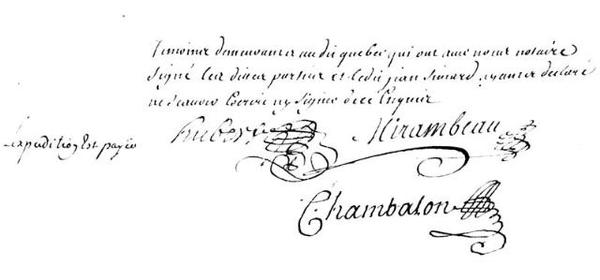 Temoins demeurants audit quebec qui ont avec nous notaire
Signé Les dittes parties et ledit jean Simard ayant declaré
ne Scavoir Escrire ny Signer de ce Enquis
Lexpedition Est payée
hubert Mirambeau
Chambalon